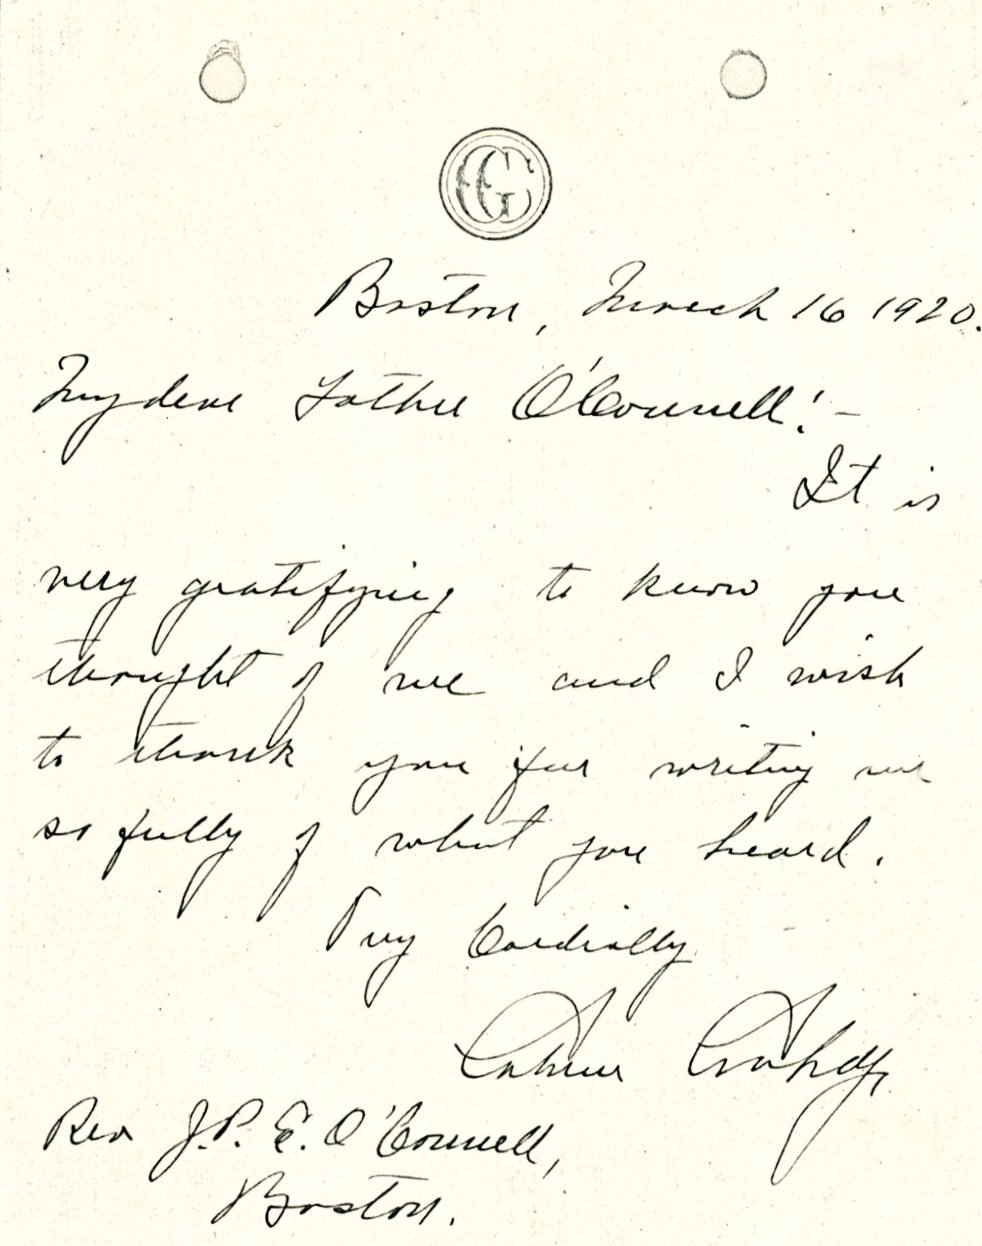 Boston, March 16 1920.
My dear Father O'Connell:-
It is
very gratifying to know you
thought of me and I wish
to thank you for writing me
so fully of what you heard.
Very Cordially
Rev J.P.E. O'Connell,
Boston.